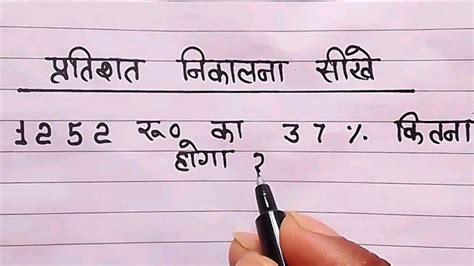 प्रतिशत निकालना सीखे
1252 रू० का 37% कितना
होगा ?